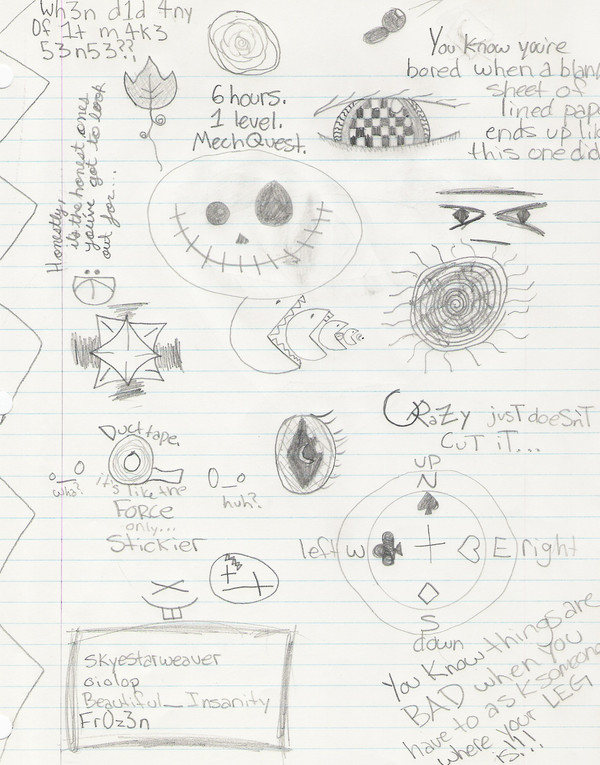 Wh3n d1d 4ny
Of 1t m4k3
53n53??,
You Know you're
bored when a blank
sheet of
lined pap
ends up lik
this one did
6 hours.
1 level.
MechQuest.
Honestly,
it's the honest ones
you've got to look
out for...
CRaZy jusT doesn'T
CUT iT...
Duct tape,
it's like the
FORCE
only...
Stickier
o_O
wha?
O_o
huh?
up
N
left W
E right
S
down
skyestarweaver
oiolop
Beautiful_Insanity
Fr0z3n
You Know things are
BAD when you
have to ask someone
where your LEG
is!!!